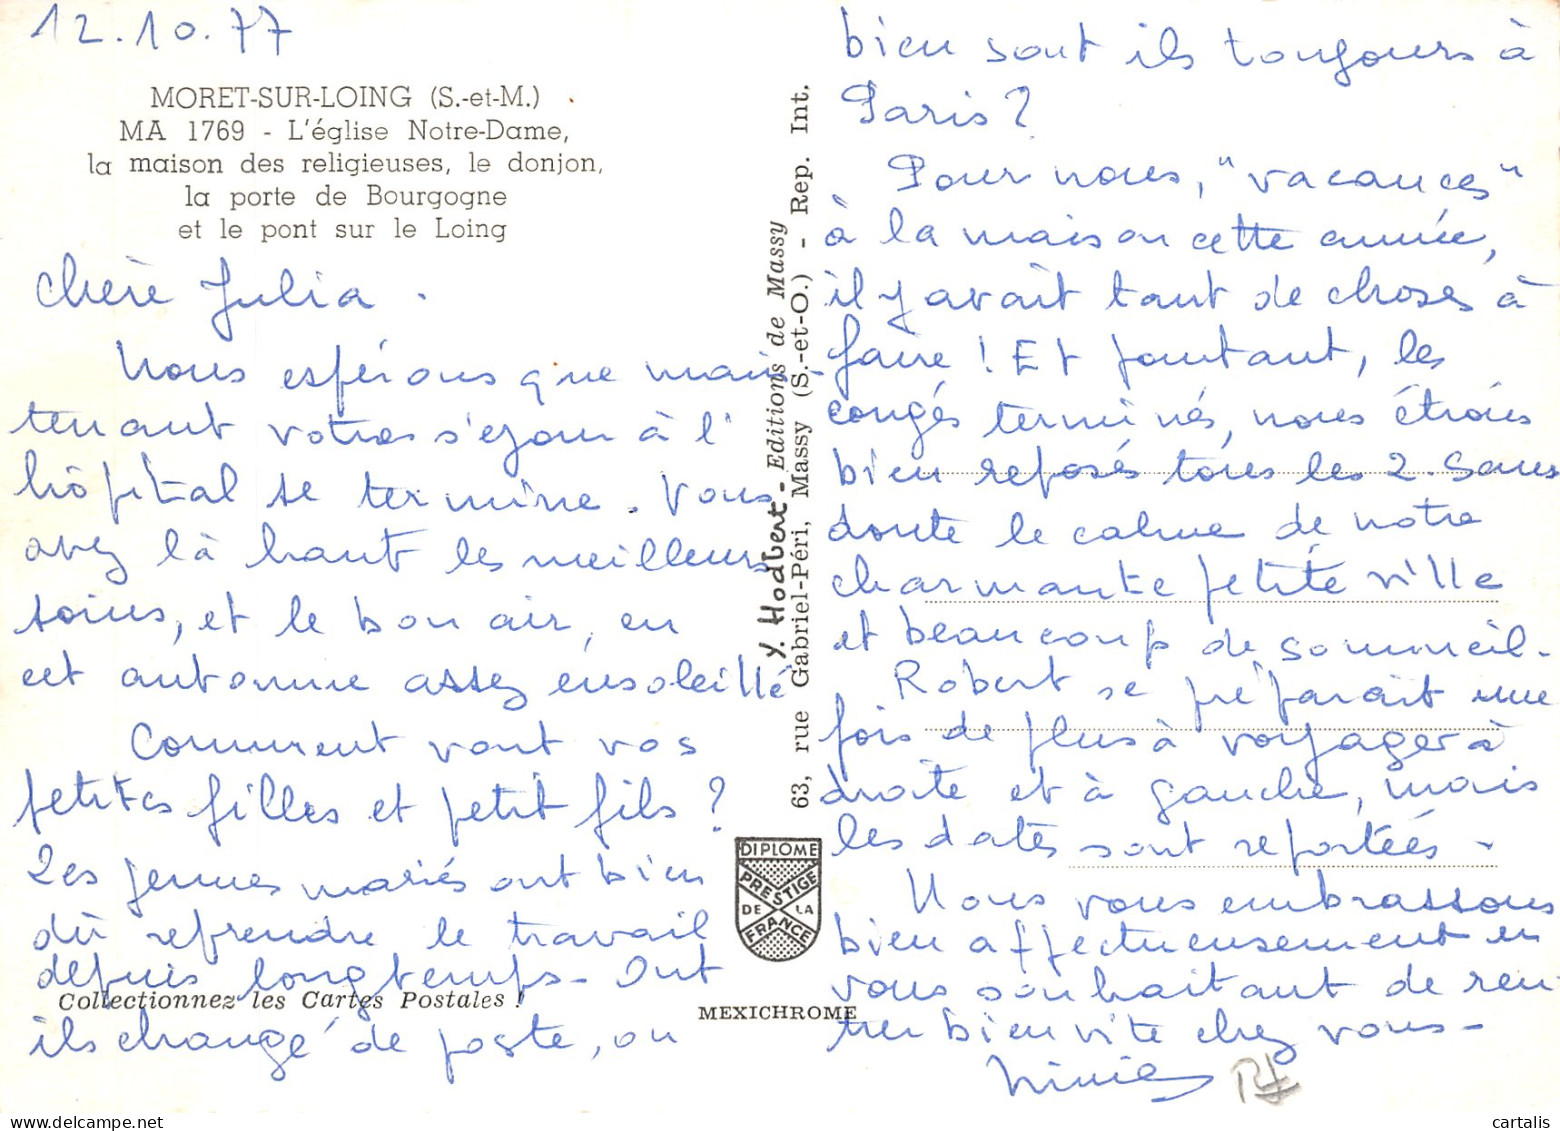 12.10.77
MORET-SUR-LOING (S.-et-M.)
MA 1769 - L'église Notre-Dame,
la maison des religieuses, le donjon,
la porte de Bourgogne
et le pont sur le Loing
Chère Julia.
Nous espérons que main-
tenant votre séjour à l'
hôpital se termine. Vous
avez là haut les meilleurs
soins, et le bon air, en
cet automne assez ensoleillé
Comment vont vos
petites filles et petit fils ?
Les jeunes mariés ont bien
dû reprendre le travail
depuis longtemps - Ont
Collectionnez les Cartes Postales !
ils changé de poste, ou
Y. Hodbert - Editions de Massy
63, rue Gabriel-Péri, Massy (S.-et-O.) - Rep. Int.
DIPLOME
PRESTIGE
DE LA
FRANCE
MEXICHROME
bien sont ils toujours à
Paris ?
Pour nous, "vacances"
à la maison cette année,
il y avait tant de choses à
faire ! Et pourtant, les
congés terminés, nous étions
bien reposés tous les 2. Sans
doute le calme de notre
charmante petite ville
et beaucoup de sommeil.
Robert se préparait une
fois de plus à voyager à
droite et à gauche, mais
les dates sont reportées -
Nous vous embrassons
bien affectueusement en
vous souhaitant de ren
trer bien vite chez vous -